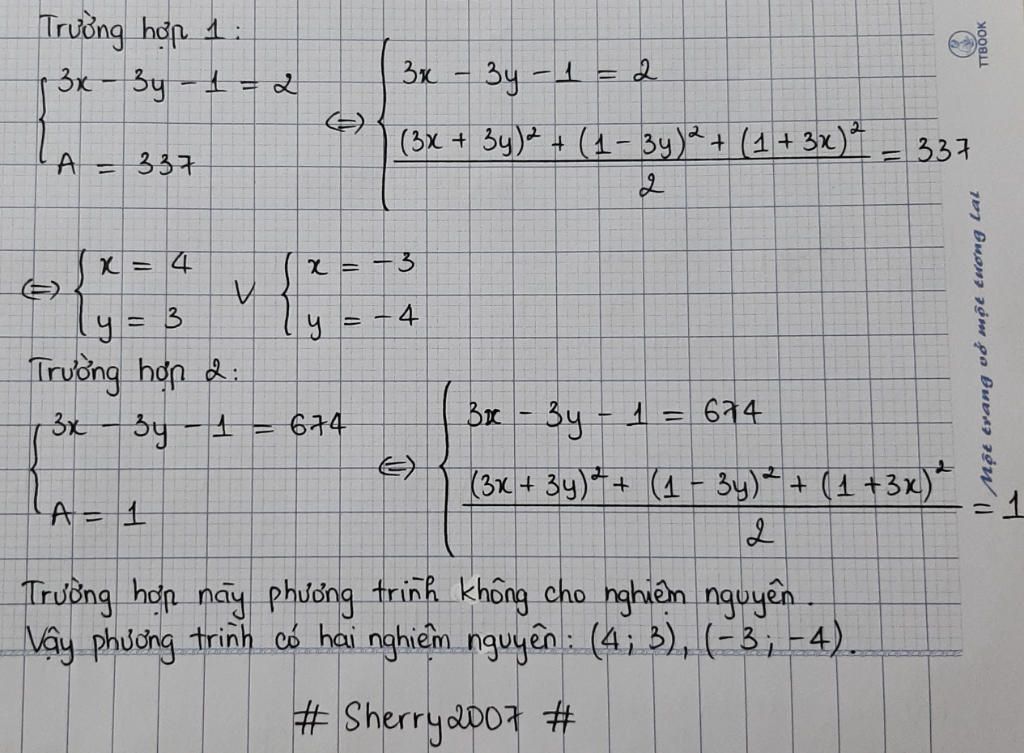 Trường hợp 1:
3x - 3y - 1 = 2
A = 337
<=> 3x - 3y - 1 = 2
(3x + 3y)² + (1 - 3y)² + (1 + 3x)²
2
= 337
<=> x = 4
y = 3
V
x = -3
y = -4
Trường hợp 2:
3x - 3y - 1 = 674
A = 1
<=> 3x - 3y - 1 = 674
(3x + 3y)² + (1 - 3y)² + (1 + 3x)²
2
= 1
Trường hợp này phương trình không cho nghiệm nguyên.
Vậy phương trình có hai nghiệm nguyên: (4; 3), (-3; -4).
# Sherry2007 #
TTBOOK
Một trang vở một tương lai